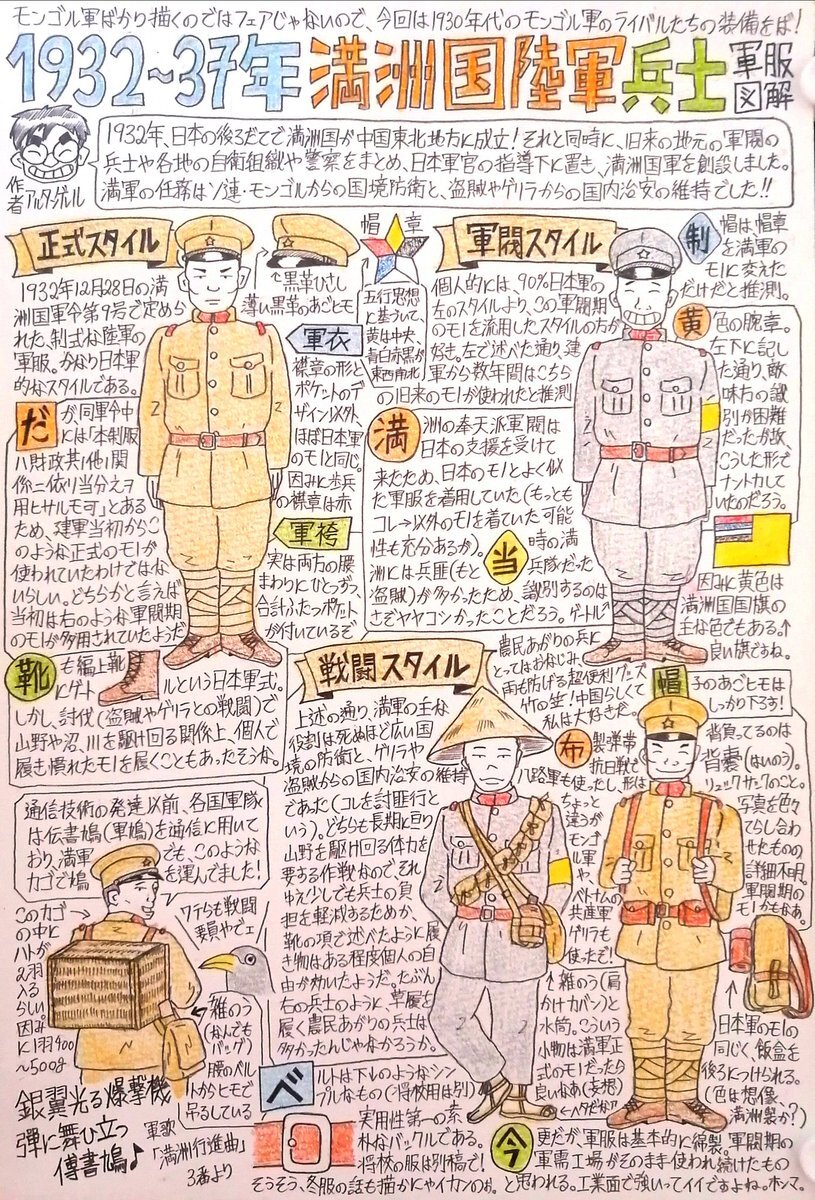 モンゴル軍ばかり描くのではフェアじゃないので、今回は1930年代のモンゴル軍のライバルたちの装備をば!
1932~37年満洲国陸軍兵士軍服図解
作者アルタンゲル
1932年、日本の後ろだてで満洲国が中国東北地方に成立!それと同時に、旧来の地元の軍閥の
兵士や各地の自衛組織や警察をまとめ、日本軍官の指導下に置き、満洲国軍を創設しました。
満軍の任務はソ連・モンゴルからの国境防衛と、盗賊やゲリラからの国内治安の維持でした!!
正式スタイル
1932年12月28日の満
洲国軍令第9号で定めら
れた、制式な陸軍の
軍服。かなり日本軍
的なスタイルである。
だ
が、同軍令中
には「本制服
ハ財政其ノ他ノ関
係ニ依リ当分之ヲ
用ヒサルモ可」とある
ため、建軍当初からこ
のような正式のモノが
使われていたわけではな
いらしい。どちらかと言えば
当初は右のような軍閥期
のモノが多用されていたようだ
黒革ひさし
薄い黒革のあごヒモ
帽章
五行思想
に基づいて
黄は中央、
青白赤黒が
東西南北
軍衣
襟章の形と
ポケットのデ
ザイン以外、
ほぼ日本軍
のモノと同じ。
因みに歩兵
の襟章は赤
軍袴
実は両方の腰
まわりにひとつずつ、
合計ふたつポケット
が付いているぞ
軍閥スタイル
個人的には、90%日本軍の
左のスタイルより、この軍閥期
のモノを流用したスタイルの方が
好き。左で述べた通り、建
軍から数年間はこちら
の旧来のモノが使われたと推測
満
洲の奉天派軍閥は
日本の支援を受けて
来たため、日本のモノとよく似
た軍服を着用していた(もっとも
コレ→以外のモノを着ていた可能
性も充分あるが)。
当
時の満
洲には兵匪(もと兵隊だった
盗賊)が多かったため、識別するのは
さぞヤヤコシかったことだろう。ゲートル↗
制
帽は、帽章
を満軍の
モノに変えた
だけだと推測。
黄
色の腕章。
左下に記し
た通り、敵
味方の識
別が困難
だったが故、
こうした形で
ナントカして
いたのだろう。
因みに黄色は
満洲国国旗の
主な色でもある。↑
良い旗ですね。
靴
も編上靴
にゲートルという日本軍式。
しかし、討伐(盗賊やゲリラとの戦闘)で
山野や沼、川を駆け回る関係上、個人で
履き慣れたモノを履くこともあったそうな。
戦闘スタイル
上述の通り、満軍の主な
役割は死ぬほど広い国
境の防衛と、ゲリラや
盗賊からの国内治安の維持
であった(コレを討匪行と
いう)。どちらも長期に亘り
山野を駆け回る体力を
要する作戦なので、それ
ゆえ少しでも兵士の負
担を軽減するためか、
靴の項で述べたように履
き物はある程度個人の自
由が効いたようだ。たぶん
右の兵士のように、草履を
履く農民あがりの兵士は
多かったんじゃなかろうか。
農民あがりの兵に
とってはおなじみ、
雨も防げる超便利グッズ
竹の笠!中国らしくて
私は大好きだ。
布
製弾帯
抗日戦で
八路軍も使ったし、形は
ちょっと
違うが
モンゴル
軍や、
ベトナム
の共産軍
ゲリラも
使ったぞ!
↑雑のう(肩
かけカバン)と
水筒。こういう
小物は満軍正
式のモノだったら
良いなあ(妄想)
帽
子のあごヒモは
しっかり下ろす!
背負ってるのは
背嚢(はいのう)。
リュックサックのこと。
写真を色々
てらし合わ
せたものの
詳細不明。
軍閥期の
モノかもなあ。
日本軍のモノと
同じく、飯盒を
後ろにつけられる。
(色は想像、
満洲製か?)
通信技術の発達以前、各国軍隊
は伝書鳩(軍鳩)を通信に用いて
おり、満軍でも、このような
カゴで鳩を運んでました!
このカゴ→
の中に
ハトが
2羽
入る
らしい。
因み
に1羽400
~500g
ワテらも戦闘
要員やでェ
雑のう
(なんでも
バッグ)
腰のベル
トからヒモで
吊るしている
銀翼光る爆撃機
彈に舞ひ立つ
傳書鳩♪
軍歌
「満洲行進曲」
3番より
ベ
ルトは下のようなシン
プルなもの(将校用は別)
実用性第一の素
朴なバックルである。
将校の服は別稿で!
そうそう、冬服の話も描かにゃイカンのか。
今
更だが、軍服は基本的に綿製。軍閥期の
軍需工場がそのまま使われ続けたもの
と思われる。工業面で強いってイイですよね。ホンマ。